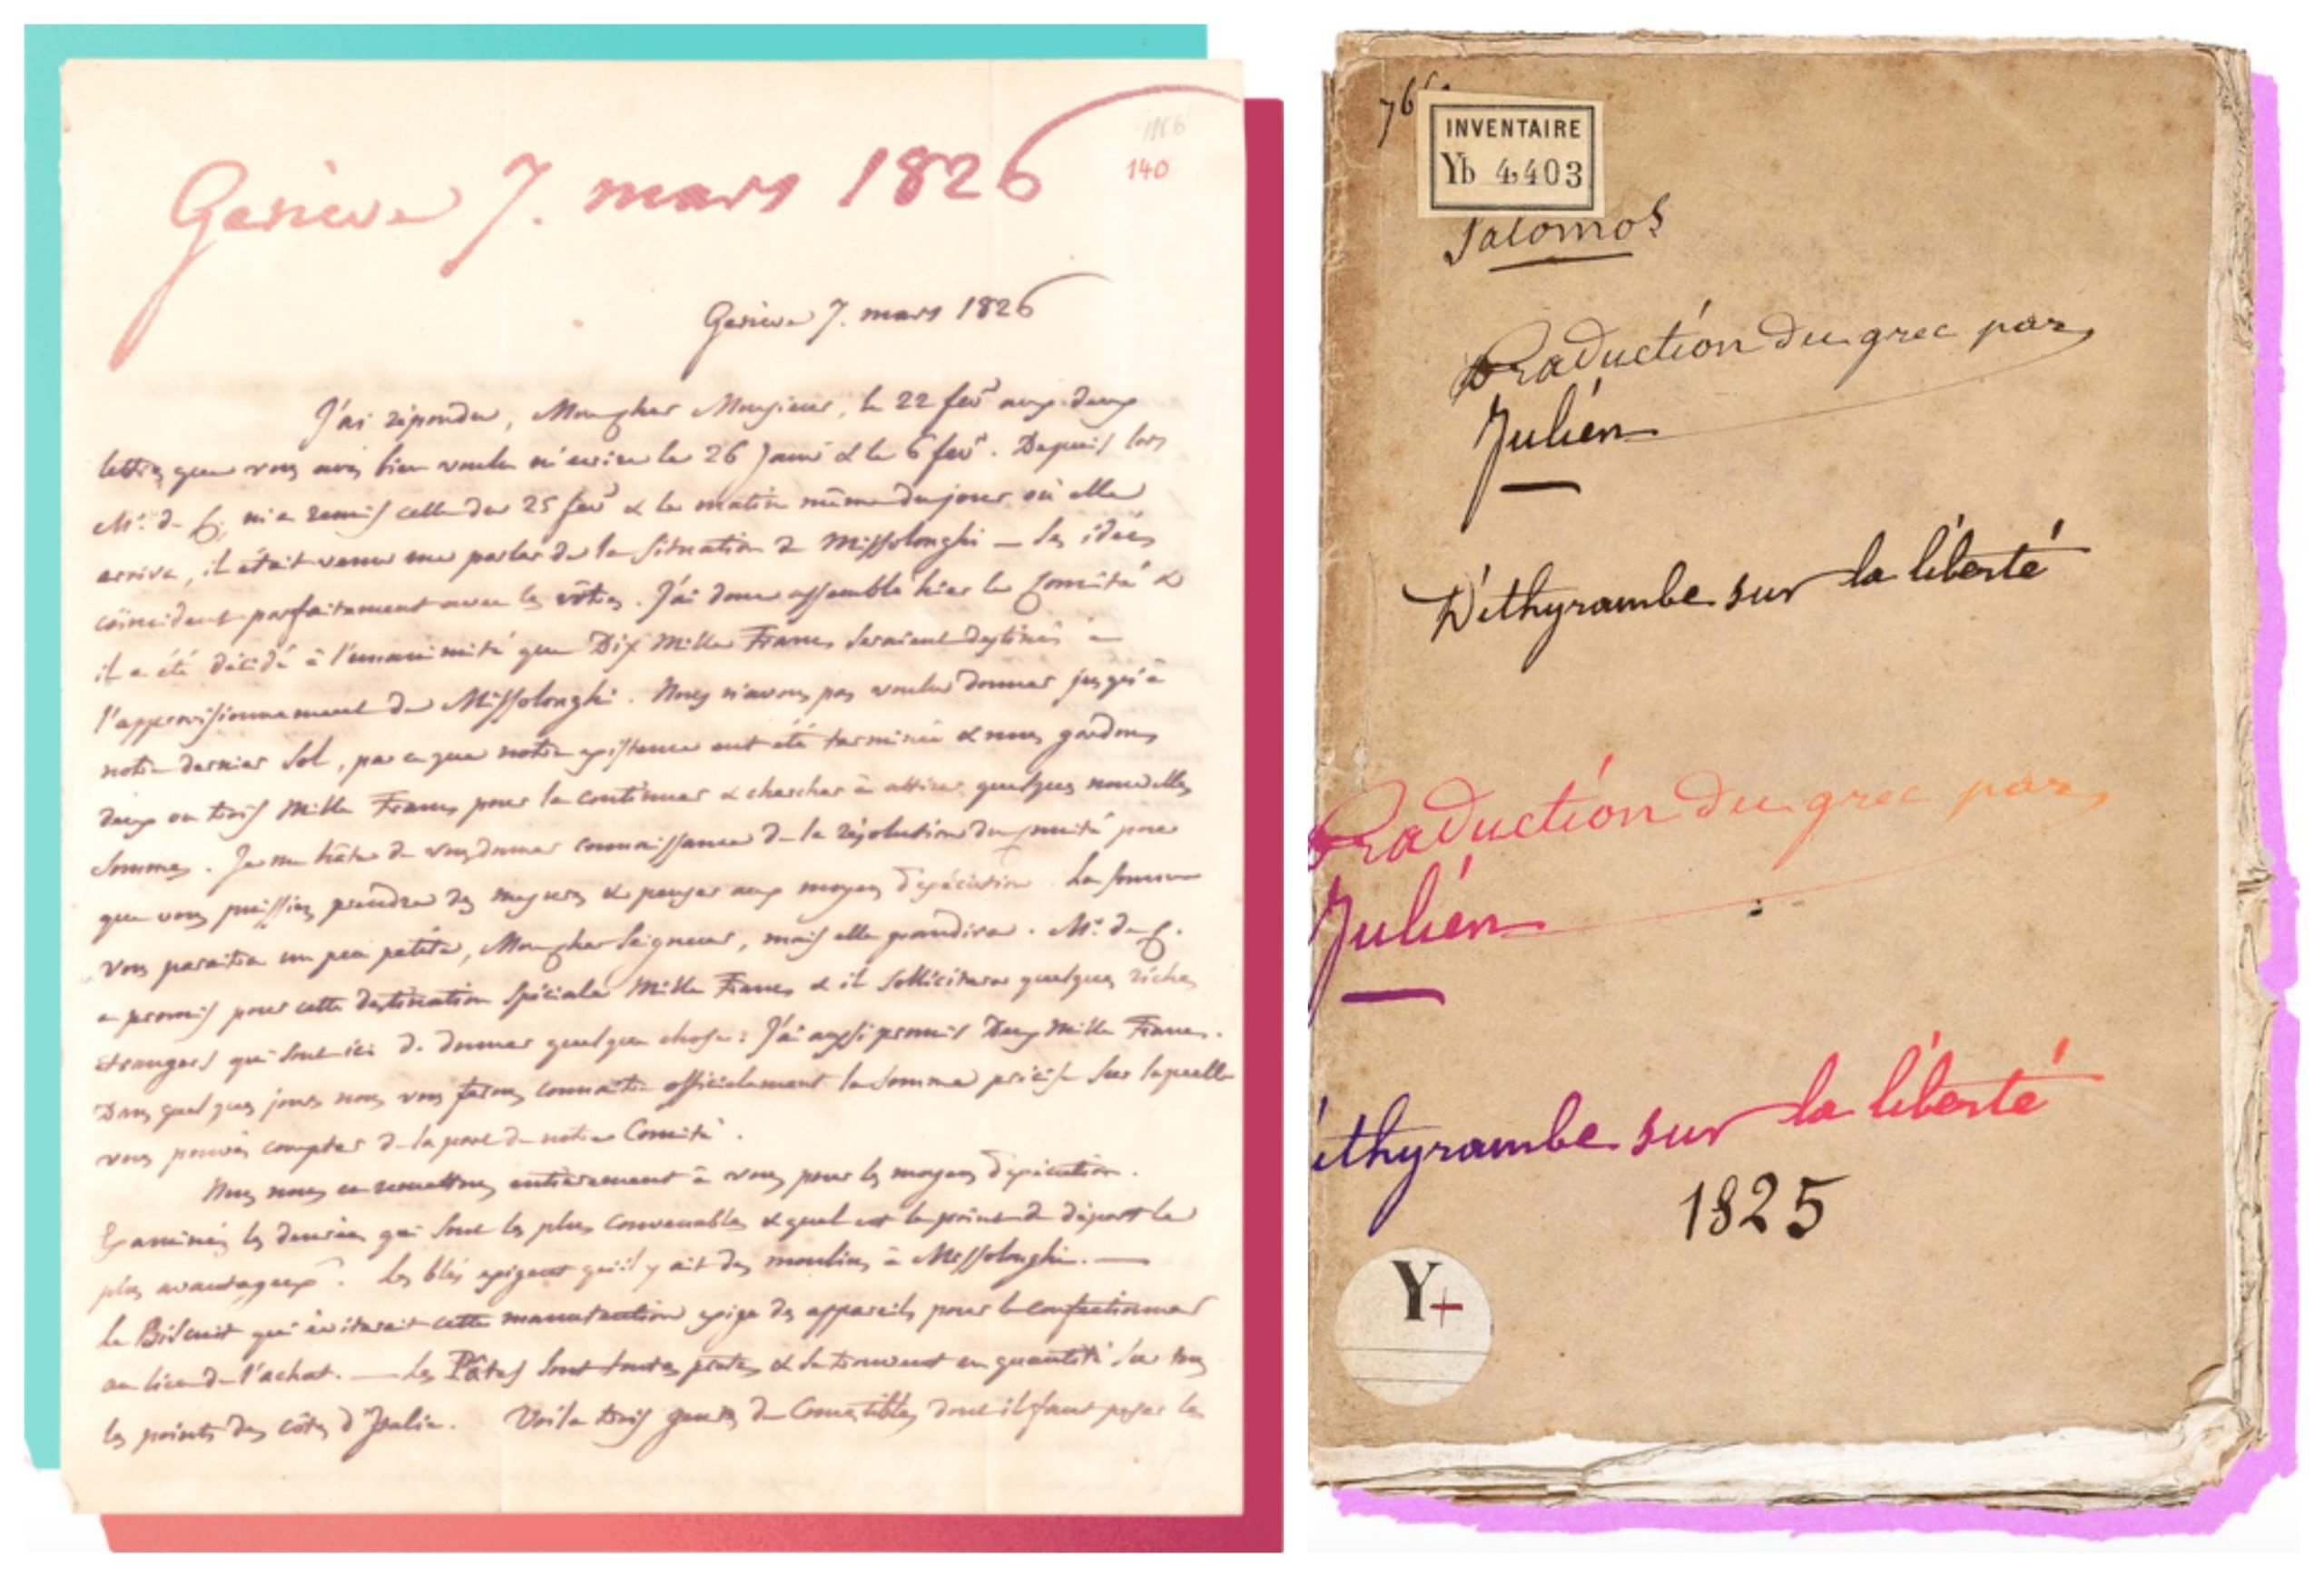 1186
140
Genève 7. mars 1826
Genève 7. mars 1826
J'ai répondu, Mon cher Monsieur, le 22 fevr aux deux
lettres que vous avés bien voulu m'ecrire le 26 Janvr & le 6 fevr. Depuis lors
Mr. d. E. m'a remis celle du 25 fevr & le matin même du jour où elle
arriva, il était venu me parler de la situation de Missolonghi — Ses idées
coïncident parfaitement avec les vôtres. J'ai donc assemblé hier le Comité &
il a été décidé à l'unanimité que Dix Mille Francs seraient destinés à
l'approvisionnement de Missolonghi. Nous n'avons pas voulu donner jusqu'à
notre dernier Sol, parce que notre existence eut été terminée & nous gardons
deux ou trois Mille Francs pour la continuer & chercher à attirer quelques nouvelles
Sommes. Je me hâte de vous donner connaissance de la résolution du Comité pour
que vous puissiez prendre des mesures & penser aux moyens d'exécution. La Somme
vous paraitra un peu petite, Mon cher Seigneur, mais elle grandira. Mr. d. E.
a promis pour cette destination spéciale Mille Francs & il sollicitera quelques riches
étrangers qui sont ici de donner quelque chose: J'ai aussi promis Deux Mille Francs.
Dans quelques jours nous vous ferons connaitre officiellement la somme précise sur laquelle
vous pouvés compter de la part de notre Comité.
Nous nous en remettons entièrement à vous pour les moyens d'exécution.
Examinés les denrées qui sont les plus convenables & quel est le point de départ le
plus avantageux. Les blés exigent qu'il y ait des moulins à Missolonghi. —
Le Biscuit qui éviterait cette manutention exige des appareils pour le confectionner
au lieu de l'achat. — Les Pâtes sont toutes prêtes & se trouvent en quantité sur tous
les points des côtes d'Italie. Voila trois genres de Comestibles dont il faut peser les
76
INVENTAIRE
Yb 4,403
Salomos
traduction du grec par
Julien
Dithyrambe sur la liberté
raduction du grec par
Julien
ithyrambe sur la liberté
1825
Y+